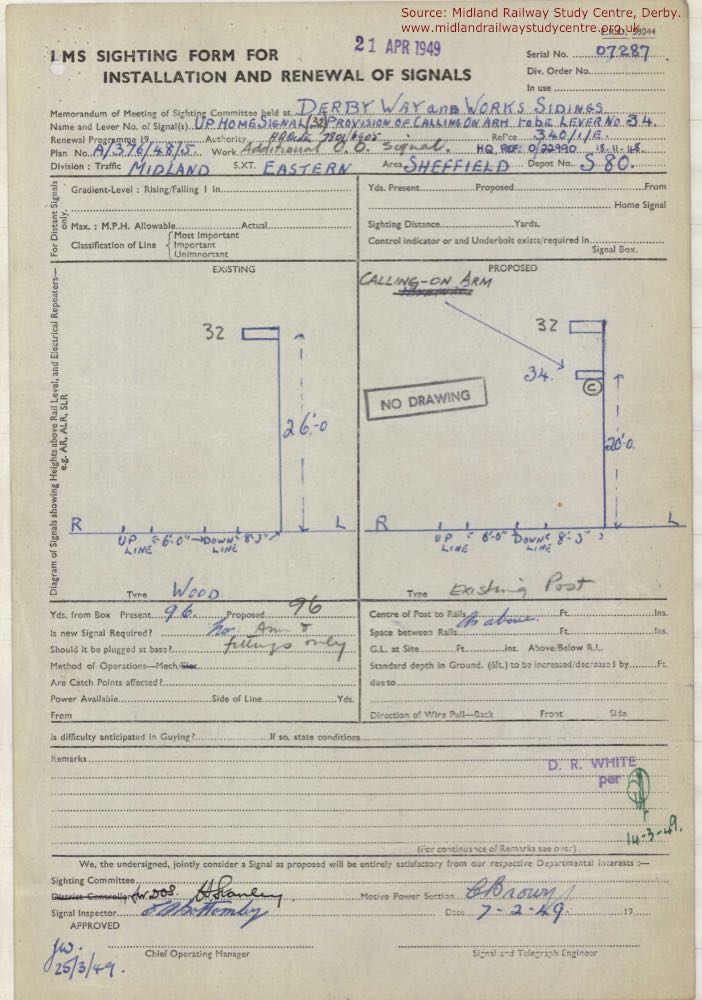 Source: Midland Railway Study Centre, Derby.
www.midlandrailwaystudycentre.org.uk
21 APR 1949
LMS SIGHTING FORM FOR
INSTALLATION AND RENEWAL OF SIGNALS
Serial No. 07287
Div. Order No.
In use
Memorandum of Meeting of Sighting Committee held at DERBY WAY AND WORKS SIDINGS
Name and Lever No. of Signal(s) UP HOME SIGNAL (32) PROVISION OF CALLING ON ARM TO BE LEVER NO 34.
Renewal Programme 19 Authority Ref'ce 340/1/E.
Plan No. A/376/48/5. Work Additional C.O. Signal. HQ REF: 0/22990 18-11-48.
Division : Traffic MIDLAND S.X.T. EASTERN Area SHEFFIELD Depot No. S 80.
For Distant Signals only.
Gradient-Level : Rising/Falling 1 in
Max. : M.P.H. Allowable Actual
Classification of Line { Most Important
Important
Unimportant
Yds. Present Proposed From
Home Signal
Sighting Distance Yards.
Control indicator or and Underbolt exists/required in
Signal Box.
Diagram of Signals showing Heights above Rail Level, and Electrical Repeaters—
e.g. AR, ALR, SLR
EXISTING
32
26'-0
R UP LINE 6'-0" DOWN LINE 8'-3" L
Type WOOD.
PROPOSED
CALLING-ON ARM
32
34.
C
NO DRAWING
20'-0.
R UP LINE 6'-0" DOWN LINE 8'-3" L
Type Existing Post
Yds. from Box Present 96. Proposed 96
Is new Signal Required? No. Arm &
Should it be plugged at base? fittings only
Method of Operations—Mech/Elec.
Are Catch Points affected?
Power Available Side of Line Yds.
From
Centre of Post to Rails As above. Ft. Ins.
Space between Rails Ft. Ins.
G.L. at Site Ft. ins. Above/Below R.L.
Standard depth in Ground. (6ft.) to be increased/decreased by Ft.
due to
Direction of Wire Pull—Back Front Side
Is difficulty anticipated in Guying? If so, state conditions
Remarks
D. R. WHITE
per
14-3-49.
(For continuance of Remarks see over.)
We, the undersigned, jointly consider a Signal as proposed will be entirely satisfactory from our respective Departmental Interests :—
Sighting Committee
District Controller for DOS. H Stanley Motive Power Section C Brown
Signal Inspector Date 7-2-49. 19
APPROVED
JW.
25/3/49.
Chief Operating Manager
Signal and Telegraph Engineer